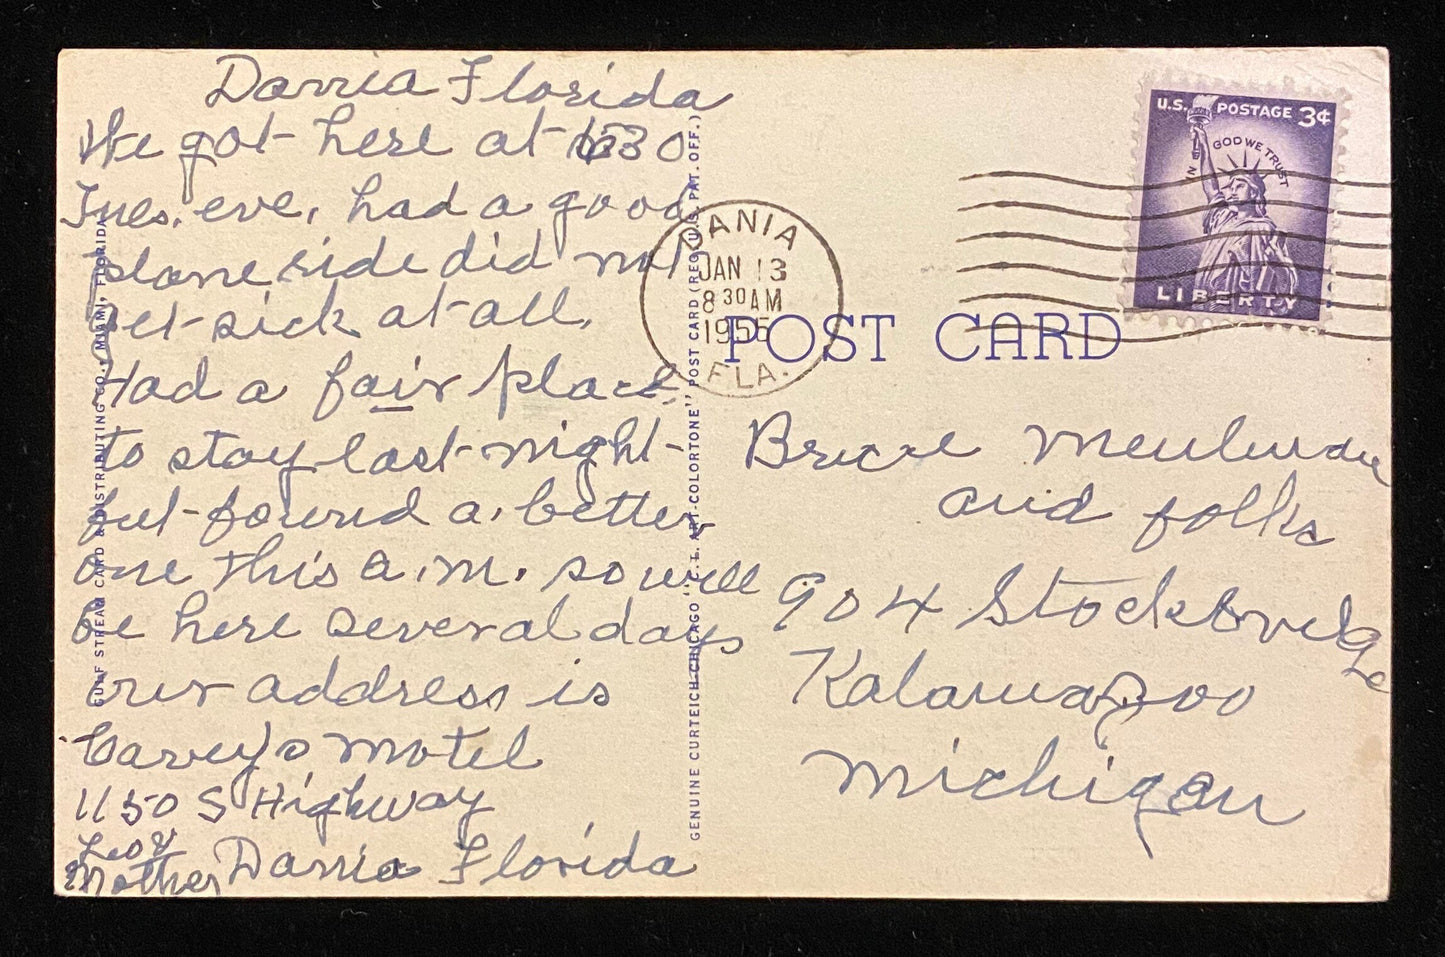 Dannia Florida
We got here at 1030
Tues. eve, had a good
plane ride did not
get sick at all.
Had a fair place
to stay last night
but found a better
one this a.m. so will
be here several days
our address is
Carey's Motel
1150 S Highway
Dannia Florida
Leo &
Mother
GULF STREAM CARD & DISTRIBUTING CO., MIAMI, FLORIDA
GENUINE CURTEICH-CHICAGO "C.T. ART-COLORTONE" POST CARD (REG. U.S. PAT. OFF.)
DANIA
JAN 13
8 30 AM
1955
FLA.
U.S. POSTAGE 3¢
IN GOD WE TRUST
LIBERTY
POST CARD
and folks
904 Stockbridge
Kalamazoo
Michigan